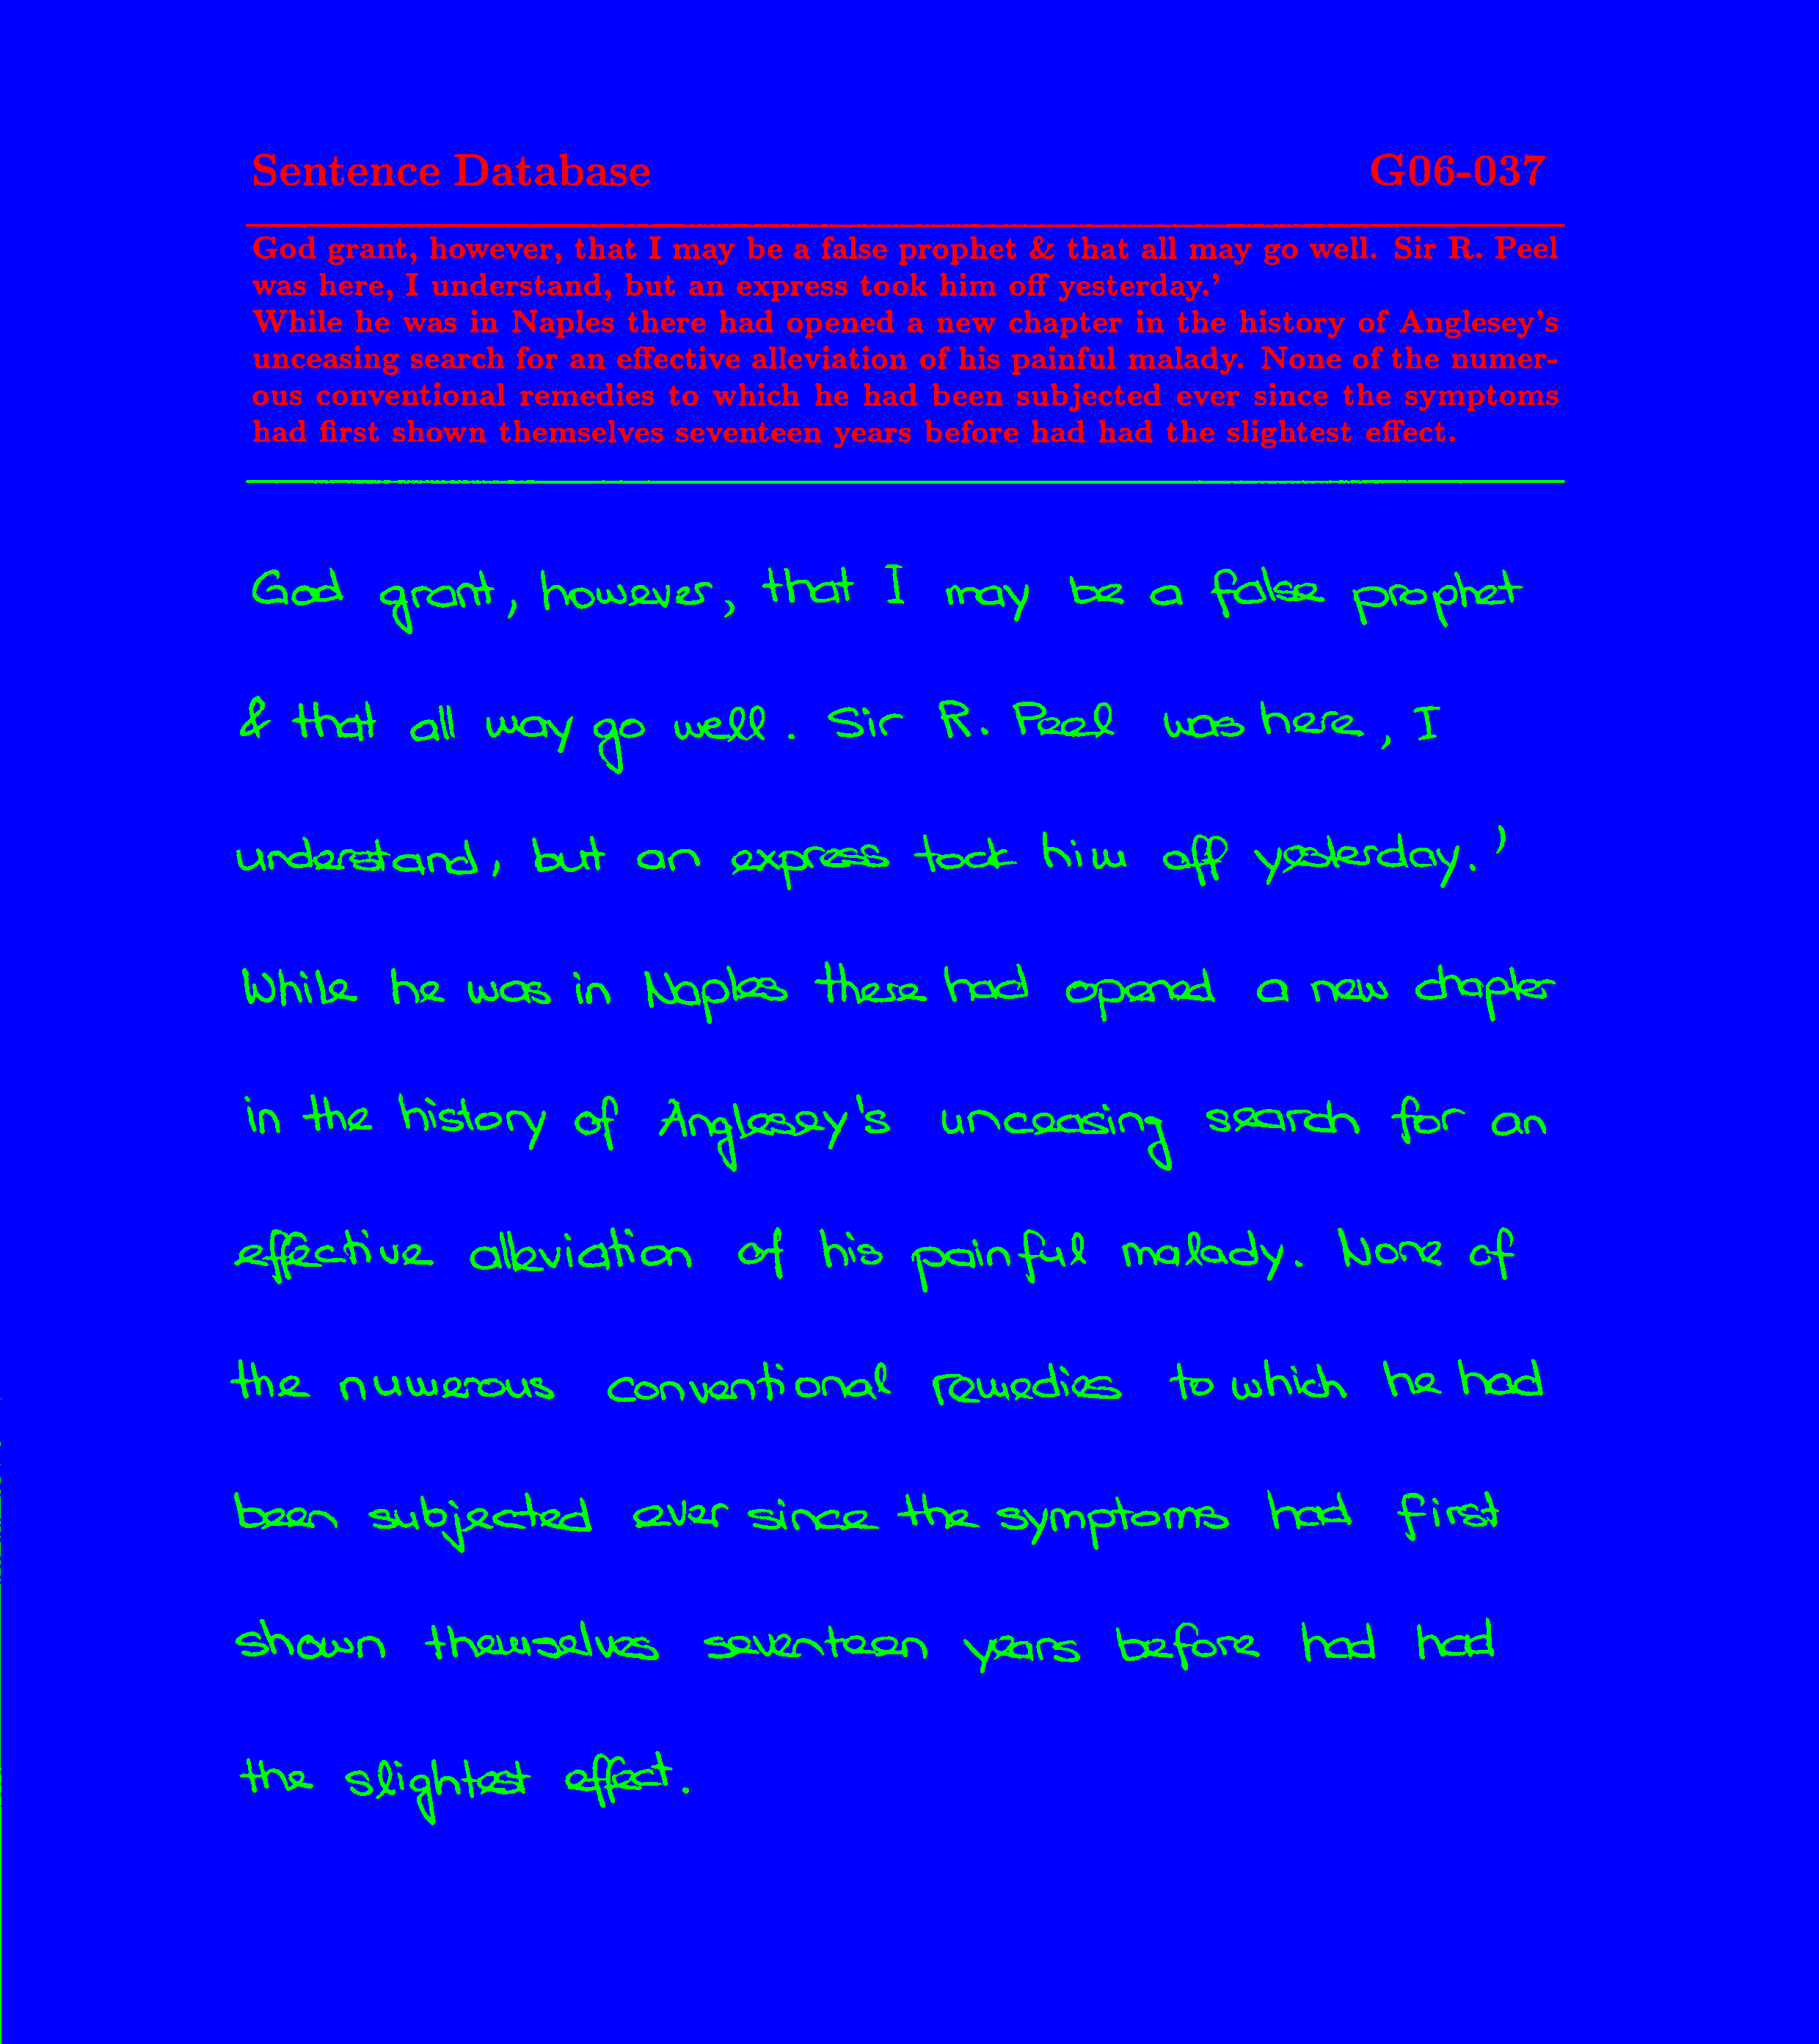 Sentence Database G06-037
God grant, however, that I may be a false prophet & that all may go well. Sir R. Peel
was here, I understand, but an express took him off yesterday.’
While he was in Naples there had opened a new chapter in the history of Anglesey’s
unceasing search for an effective alleviation of his painful malady. None of the numer-
ous conventional remedies to which he had been subjected ever since the symptoms
had first shown themselves seventeen years before had had the slightest effect.
God grant, however, that I may be a false prophet
& that all way go well. Sir R. Peel was here, I
understand, but an express took him off yesterday.’
While he was in Naples there had opened a new chapter
in the history of Anglesey's unceasing search for an
effective alleviation of his painful malady. None of
the numerous conventional remedies to which he had
been subjected ever since the symptoms had first
shown themselves seventeen years before had had
the slightest effect.